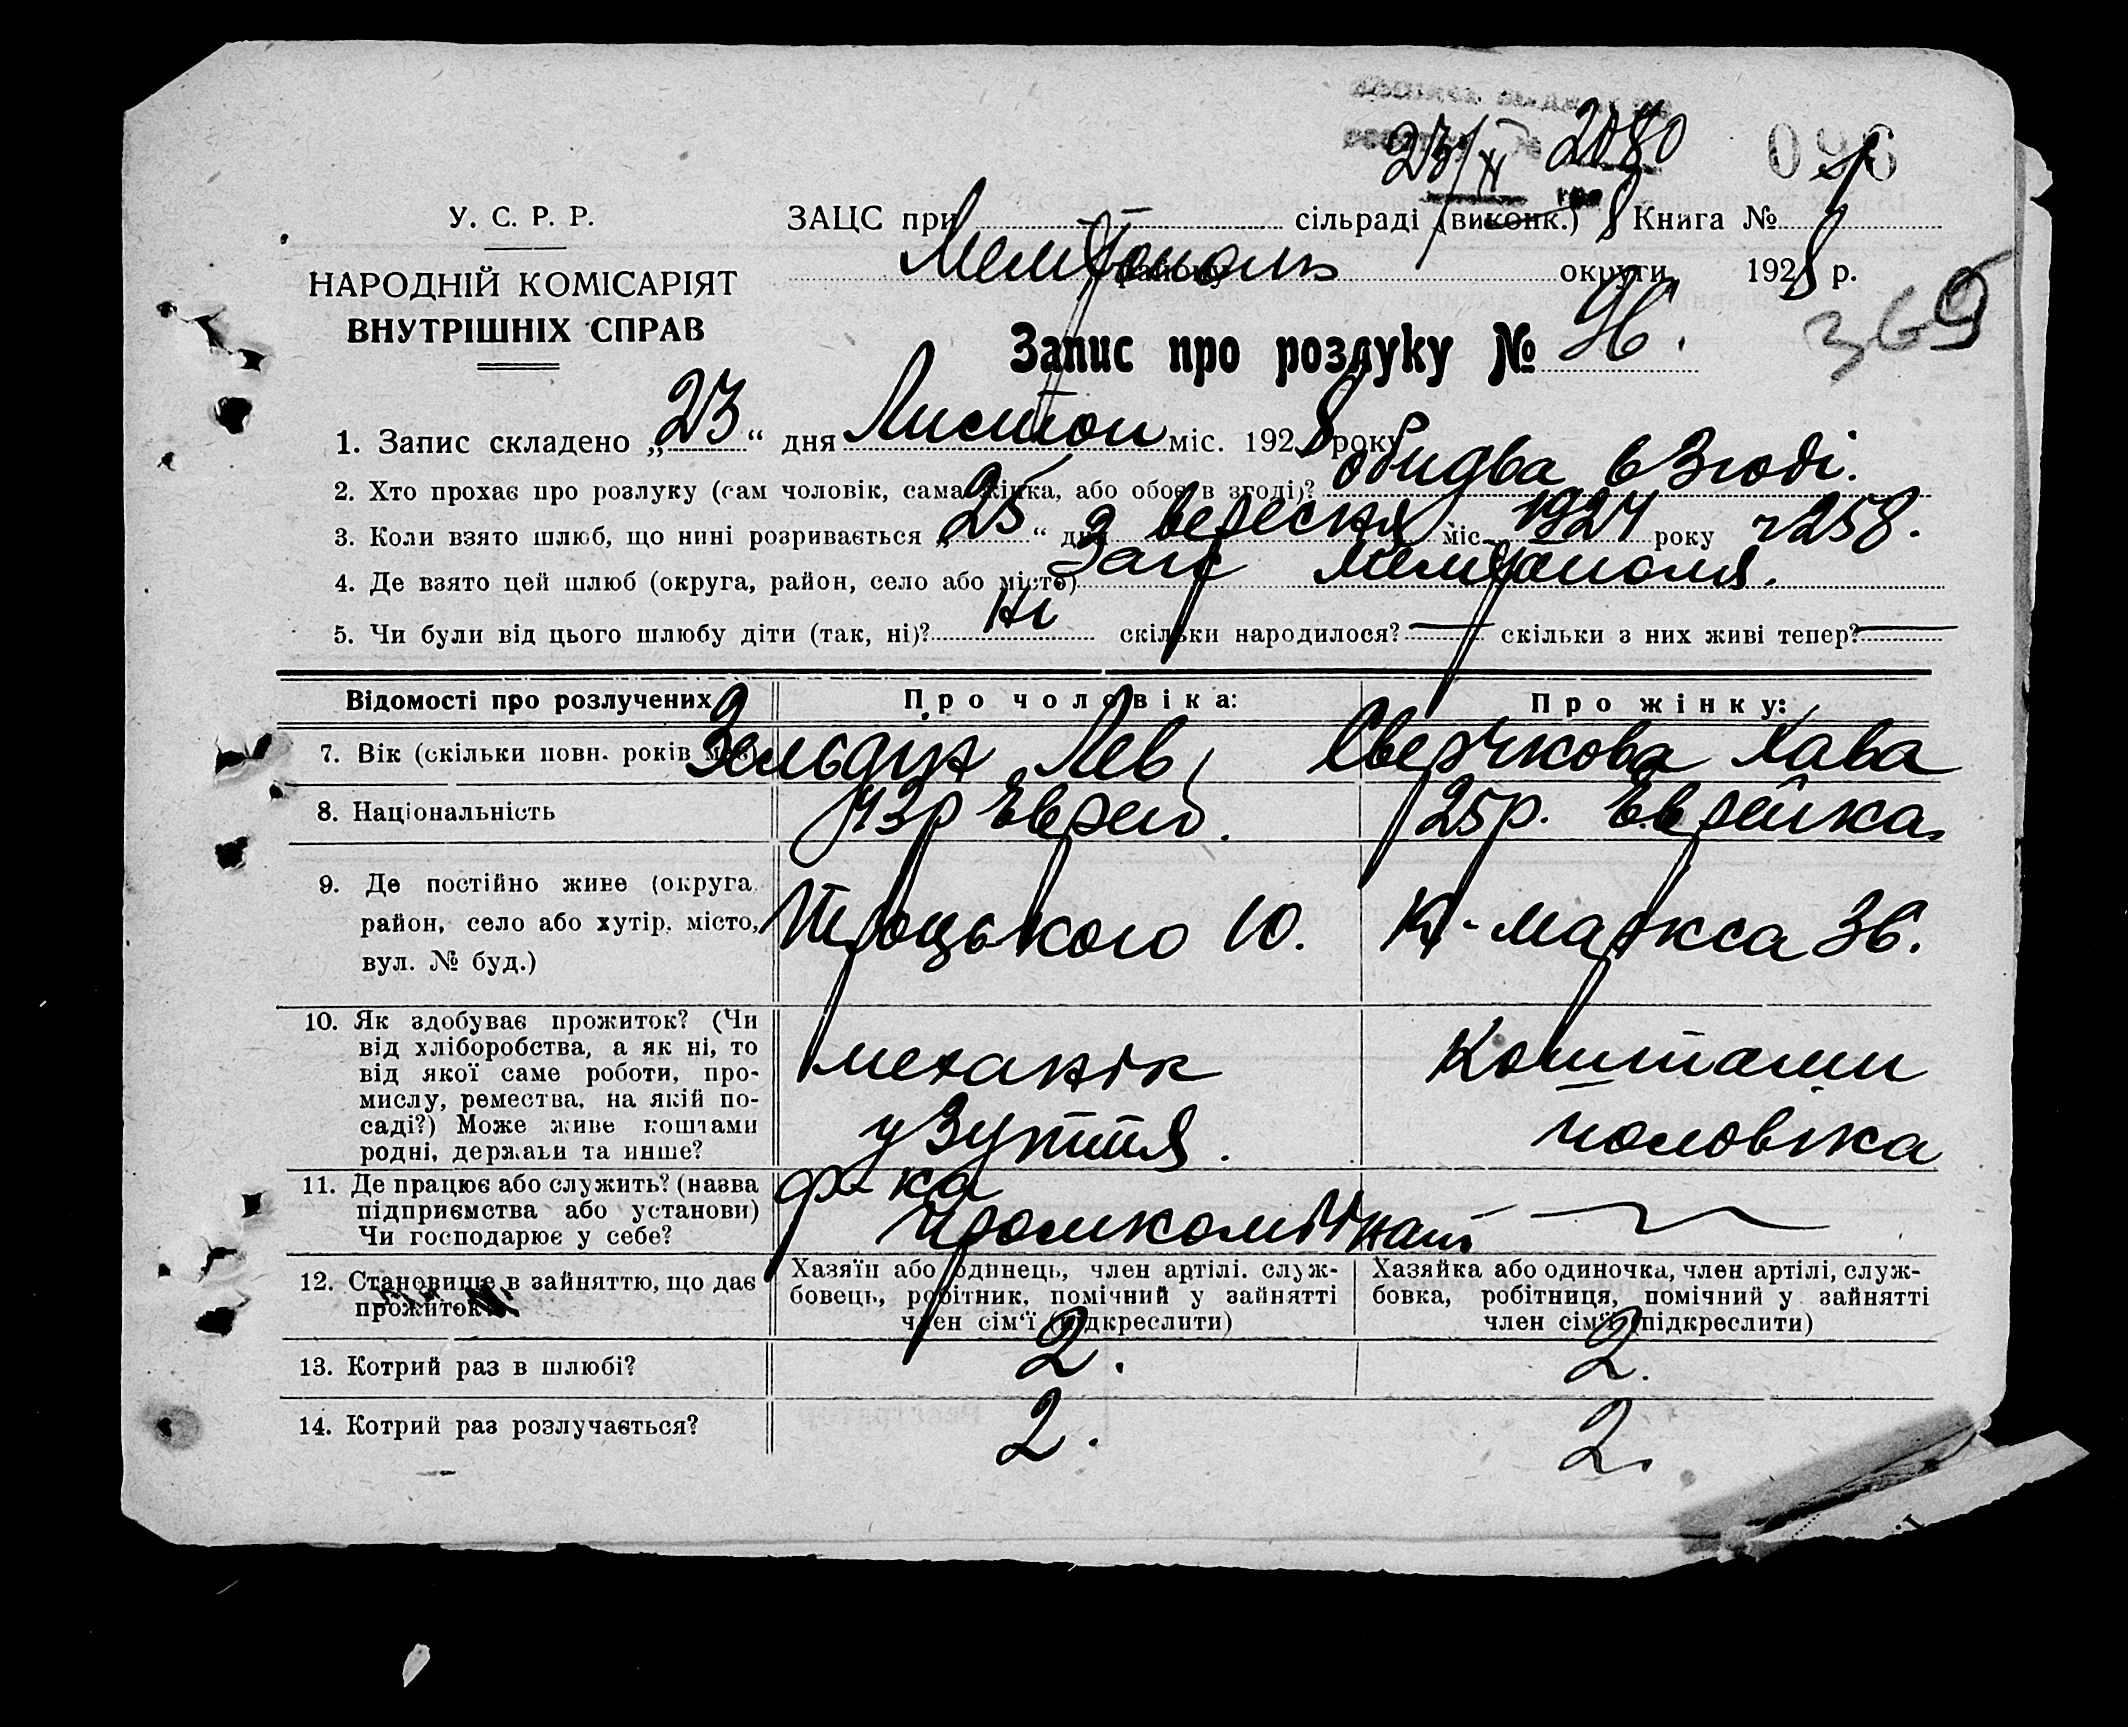 23/XI 2080
096
У. С. Р. Р.
ЗАЦС при сільраді (виконк.) Книга №
НАРОДНІЙ КОМІСАРІЯТ
ВНУТРІШНІХ СПРАВ
Мелітополь району округи 1928 р.
369
Запис про розлуку № 96.
1. Запис складено „23“ дня Листоп міс. 1928 року
2. Хто прохає про розлуку (сам чоловік, сама жінка, або обоє в згоді)? обидва в згоді.
3. Коли взято шлюб, що нині розривається „25“ дня вересня міс. 1927 року ч 258.
4. Де взято цей шлюб (округа, район, село або місто) Загс Мелітополя.
5. Чи були від цього шлюбу діти (так, ні)? Ні скільки народилося? — скільки з них живі тепер? —
Відомості про розлучених Про чоловіка: Про жінку:
7. Вік (скільки повн. років має) Лев Сверчкова Хава
8. Національність 43р Еврей. 25р. Еврейка
9. Де постійно живе (округа, район, село або хутір, місто, вул. № буд.)
Троцького 10. К-Маркса 36.
10. Як здобуває прожиток? (Чи
від хліборобства, а як ні, то
від якої саме роботи, про-
мислу, ремества, на якій по-
саді?) Може живе коштами
родні, держави та инше?
механік
узуття.
Коштами
чоловіка
11. Де працює або служить? (назва
підприємства або установи)
Чи господарює у себе?
ф-ка
Промкомбінат
12. Становище в зайняттю, що дає
прожиток
Хазяїн або одинець, член артілі, служ-
бовець, робітник, помічний у зайнятті
член сім'ї (підкреслити)
Хазяйка або одиночка, член артілі, служ-
бовка, робітниця, помічний у зайнятті
член сім'ї (підкреслити)
13. Котрий раз в шлюбі? 2. 2.
14. Котрий раз розлучається? 2. 2.